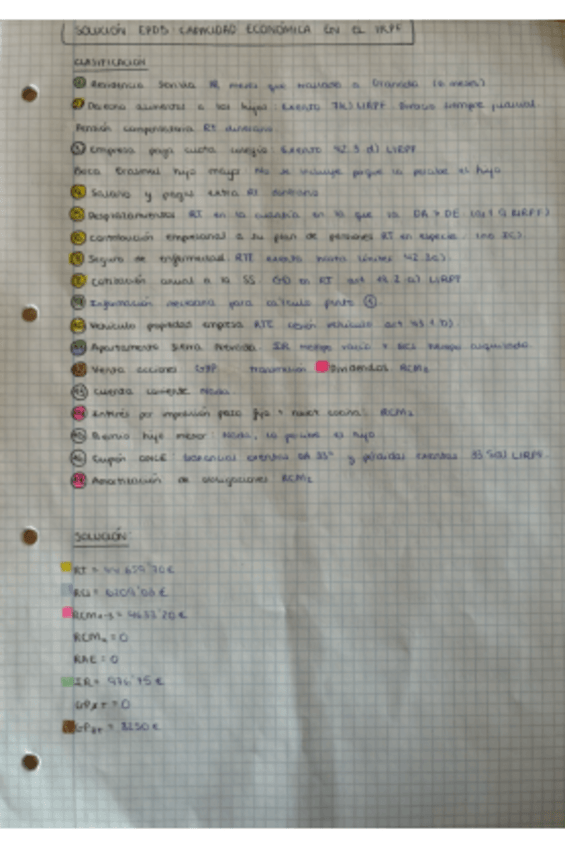 SOLUCIÓN EPD5: CAPACIDAD ECONÓMICA EN EL IRPF
CLASIFICACIÓN
① Residencia Sevilla meses que trasladado a Granada (6 meses)
② Pensión alimentos a los hijos: Exento 7k) LIRPF siempre judicial.
Pensión compensatoria RT dinerario
③ Empresa paga cuota colegio: Exento 42.3 d) LIRPF
Beca Erasmus hijo mayor No se incluye porque la percibe el hijo
④ Salario y pagas extra RT dinerario
⑤ Desplazamientos RT en la cuantía en la que va DA > DE (art 9 RIRPF)
⑥ Contribución empresarial a su plan de pensiones RT en especie. (no IC).
⑦ Seguro de enfermedad RTE exento hasta límites 42.3c).
⑧ Cotización anual a la SS GD en RT art 19.2 a) LIRPF
Información necesaria para cálculo punto
⑩ Vehículo propiedad empresa RTE cesión vehículo art 43.1 b)
⑪ Apartamento Sierra Nevada. IR tiempo vacío y RCI tiempo alquilado.
⑫ Venta acciones GPP transmisión Dividendos RCM
⑬ Cuenta corriente Nada.
⑭ Interés por imposición plazo fijo + robot cocina: RCM
⑮ Premio hijo menor: Nada, lo percibe el hijo
⑯ Cupón ONCE: exentas DA 33ª y pérdidas exentas 33.5d) LIRPF.
⑰ Amortización de obligaciones RCM
SOLUCIÓN:
RT = 44.659'70€
RCI = 6209'03€
= 4633'20€
= 0
RAE = 0
IR = €
= 0
= 3250€